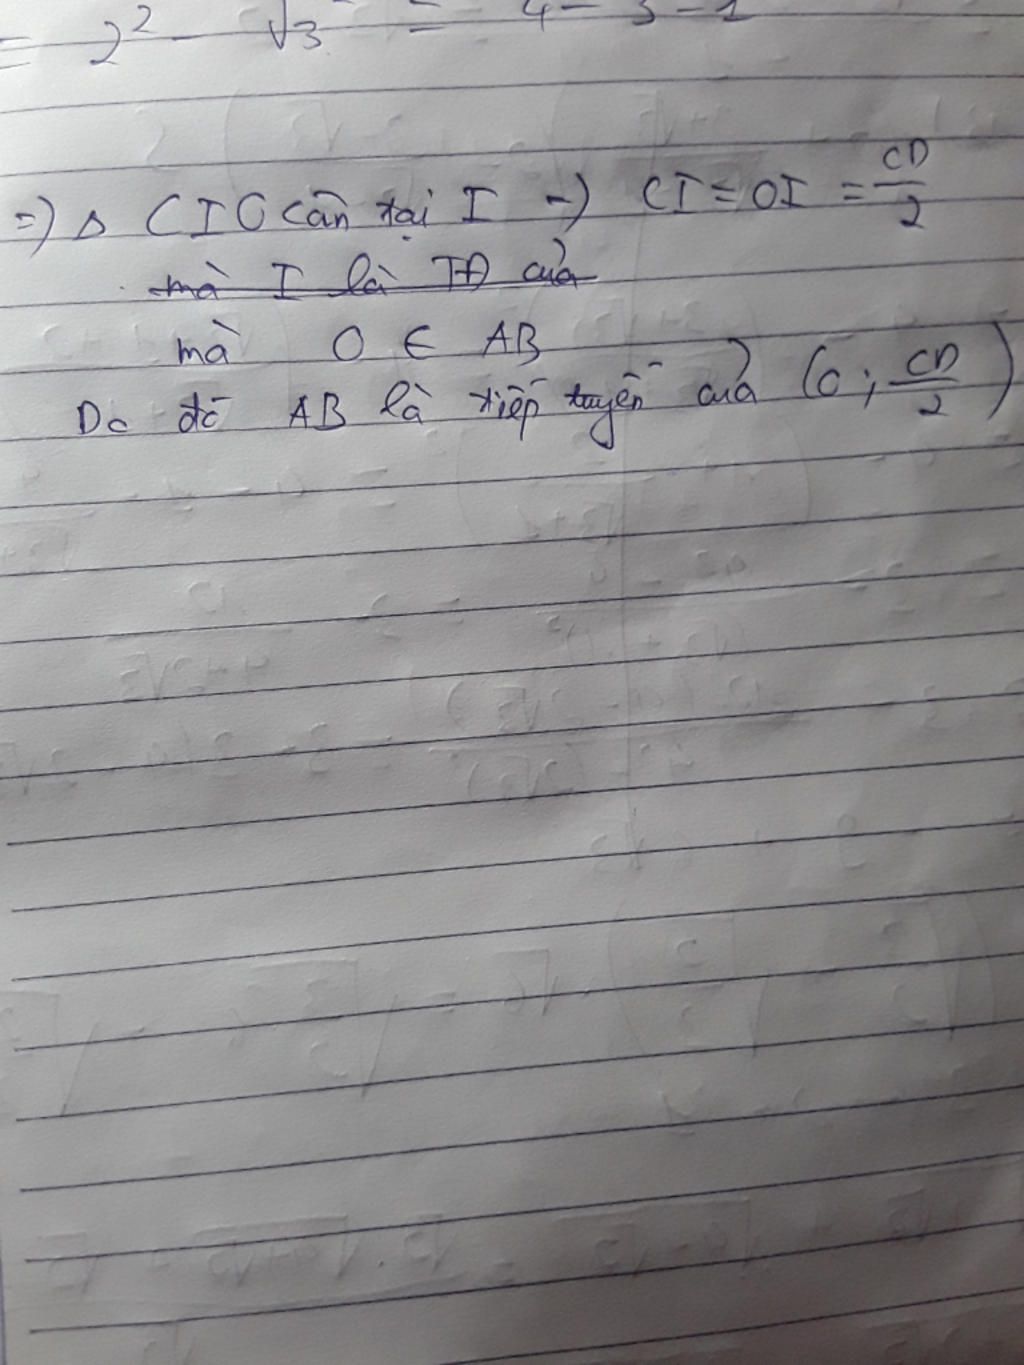 = 2² - √3² = 4 - 3 = 1
=) Δ CIO cân tại I -) CI = OI = CD/2
mà I là TĐ của
mà O ∈ AB
Do đó AB là tiếp tuyến của (O; CD/2)